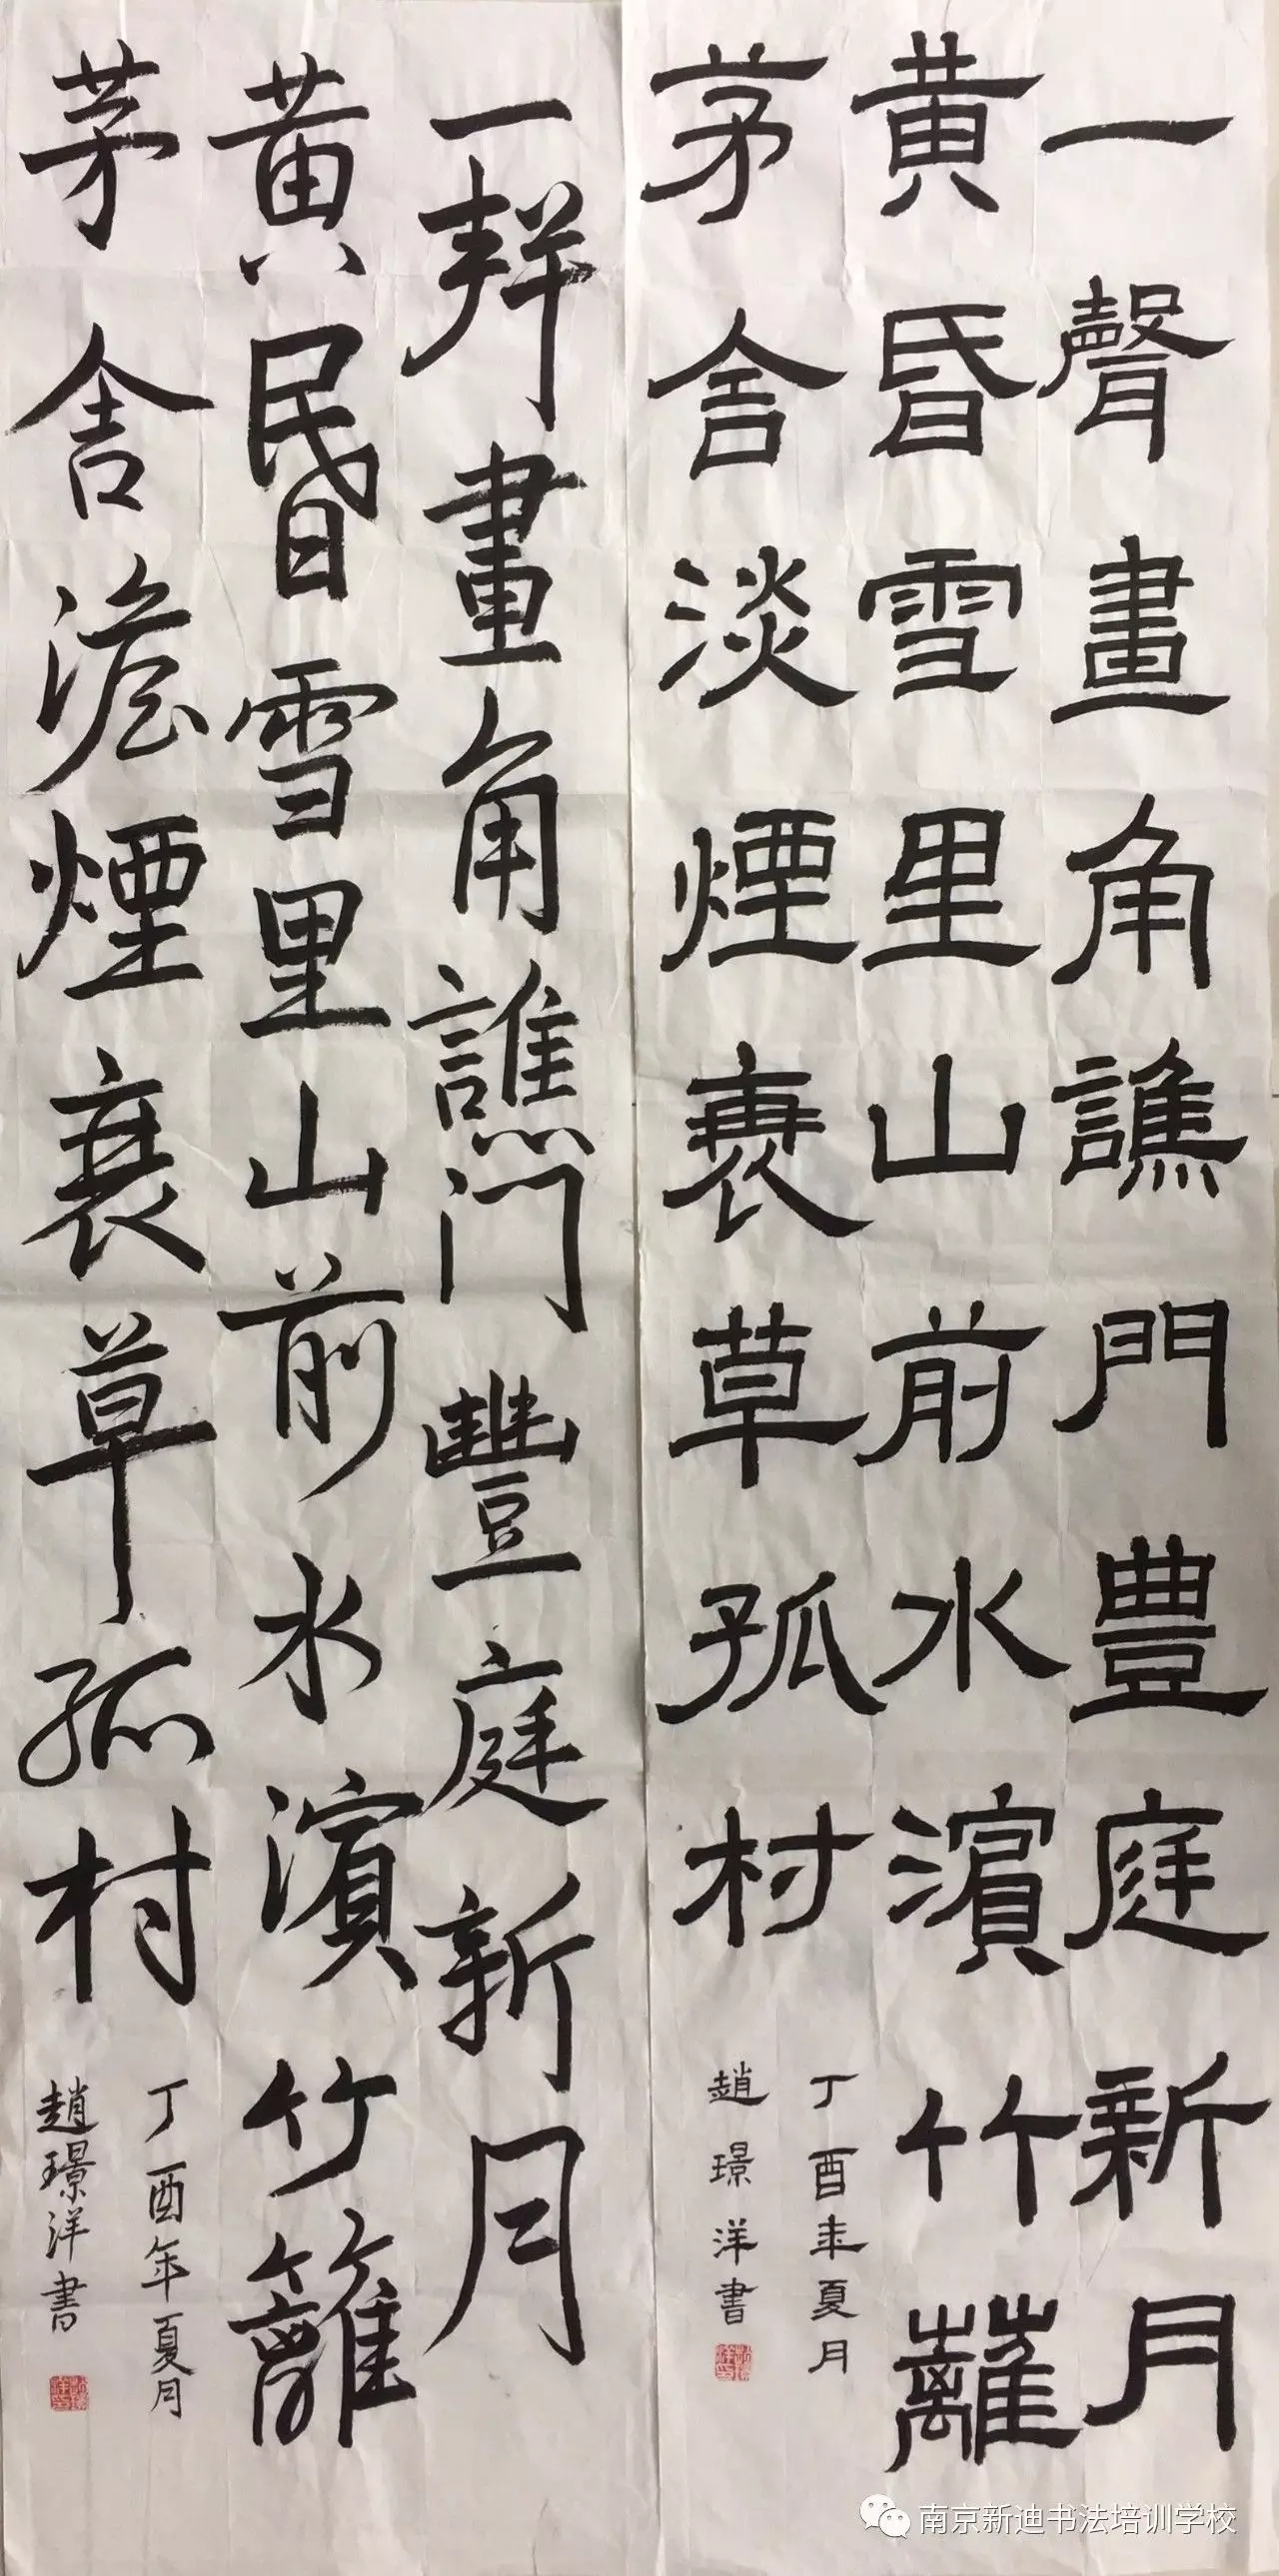 一聲畫角譙門豐庭新月
黄昏雪里山前水濱竹籬
茅舍淡煙衰草孤村
丁酉年夏月
趙璟洋書
一聲畫角譙門豐庭新月
黄昏雪里山前水濱竹籬
茅舍澹煙衰草孤村
丁酉年夏月
趙璟洋書
南京新迪书法培训学校